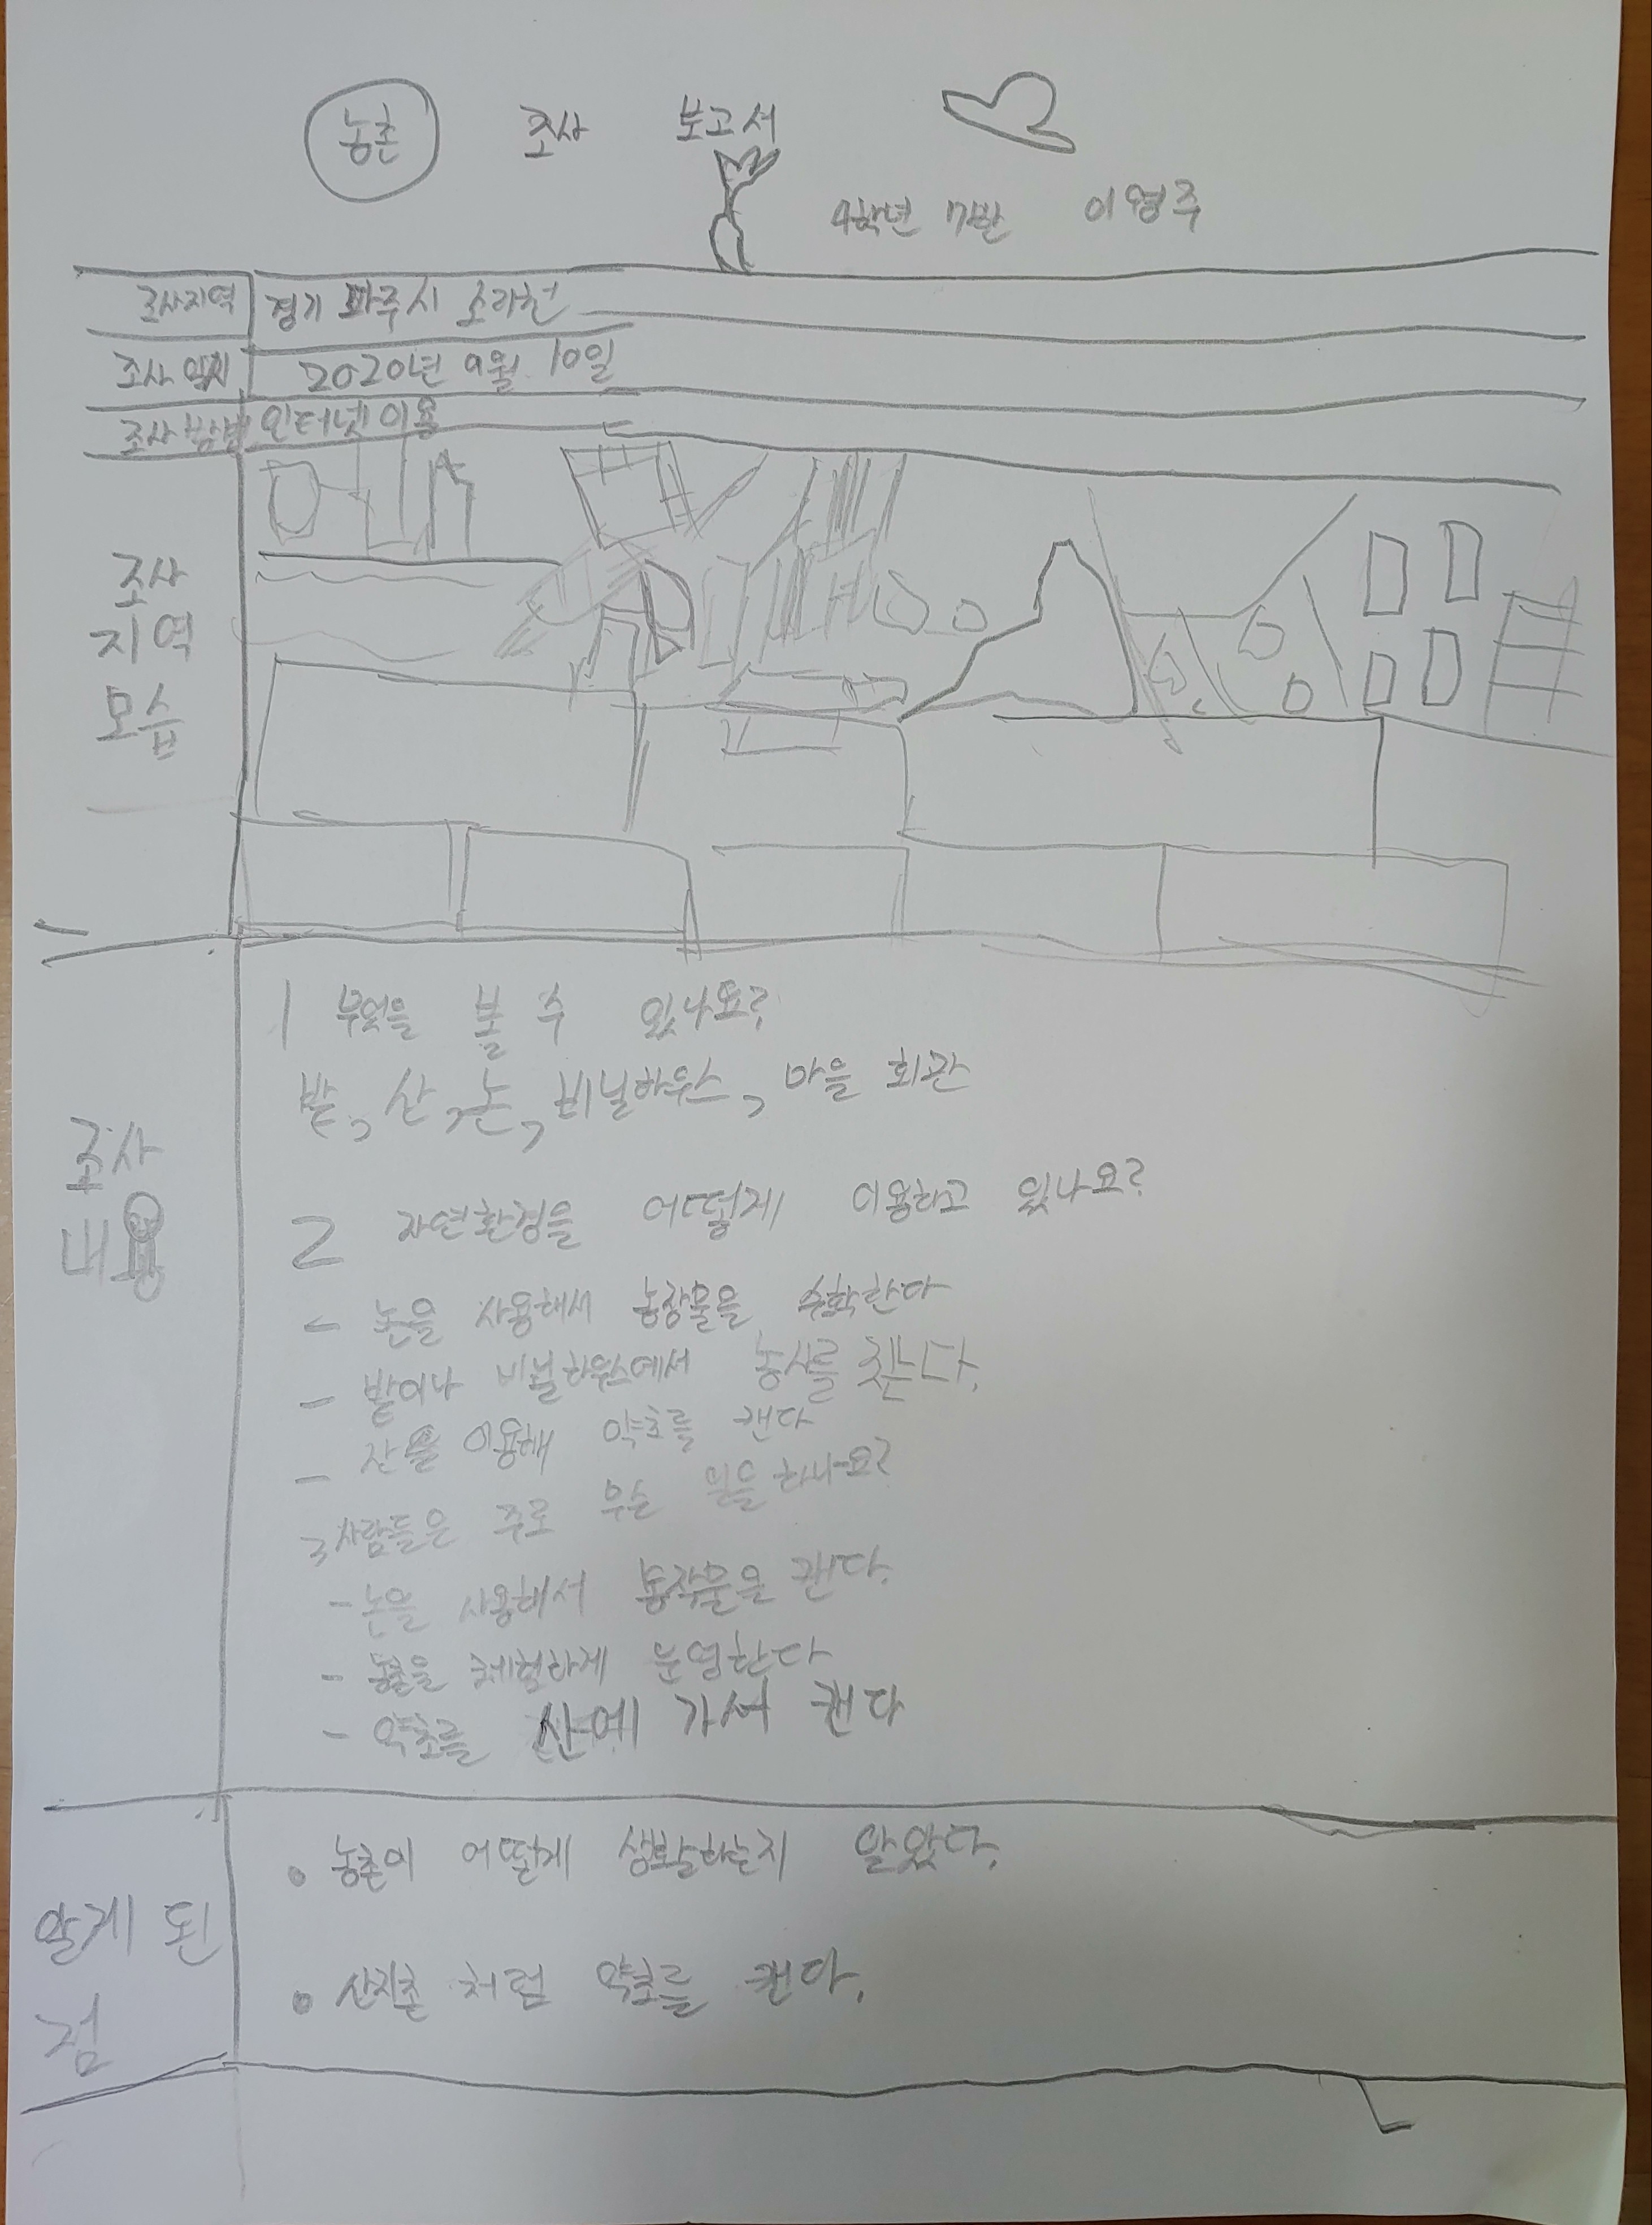 농촌 조사 보고서
4학년 7반 이영주
조사지역 경기 파주시 소라천
조사 일시 2020년 9월 10일
조사 방법 인터넷 이용
조사
지역
모습
1 무엇을 볼 수 있나요?
밭, 산, 논, 비닐하우스, 마을 회관
조사
내용
2 자연환경을 어떻게 이용하고 있나요?
- 논을 사용해서 농장물을 수확한다
- 밭이나 비닐하우스에서 농사를 짓는다.
- 산을 이용해 약초를 캔다
3 사람들은 주로 무슨 일을 하나요?
- 논을 사용해서 농작물을 캔다.
- 체험하게 운영한다
- 약초를 산에 가서 캔다
알게 된
점
• 농촌이 어떻게 생활하는지 알았다.
• 산지촌 처럼 약초를 캔다.